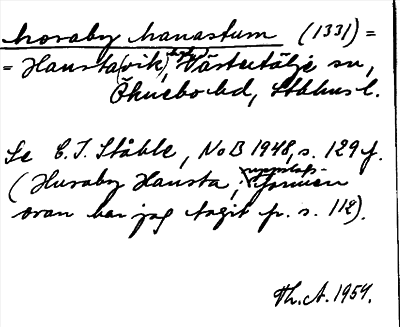 horaby hanastum (1331) =
= Hausta(vik), Västertälje sn,
Öknebo hd, Sthlms l.
Se C.I. Ståhle, NoB 1948, s. 129 f.
(Huraby Hausta, uppslags-
formen
ovan har jag tagit fr. s. 112).
Th. A. 1954.